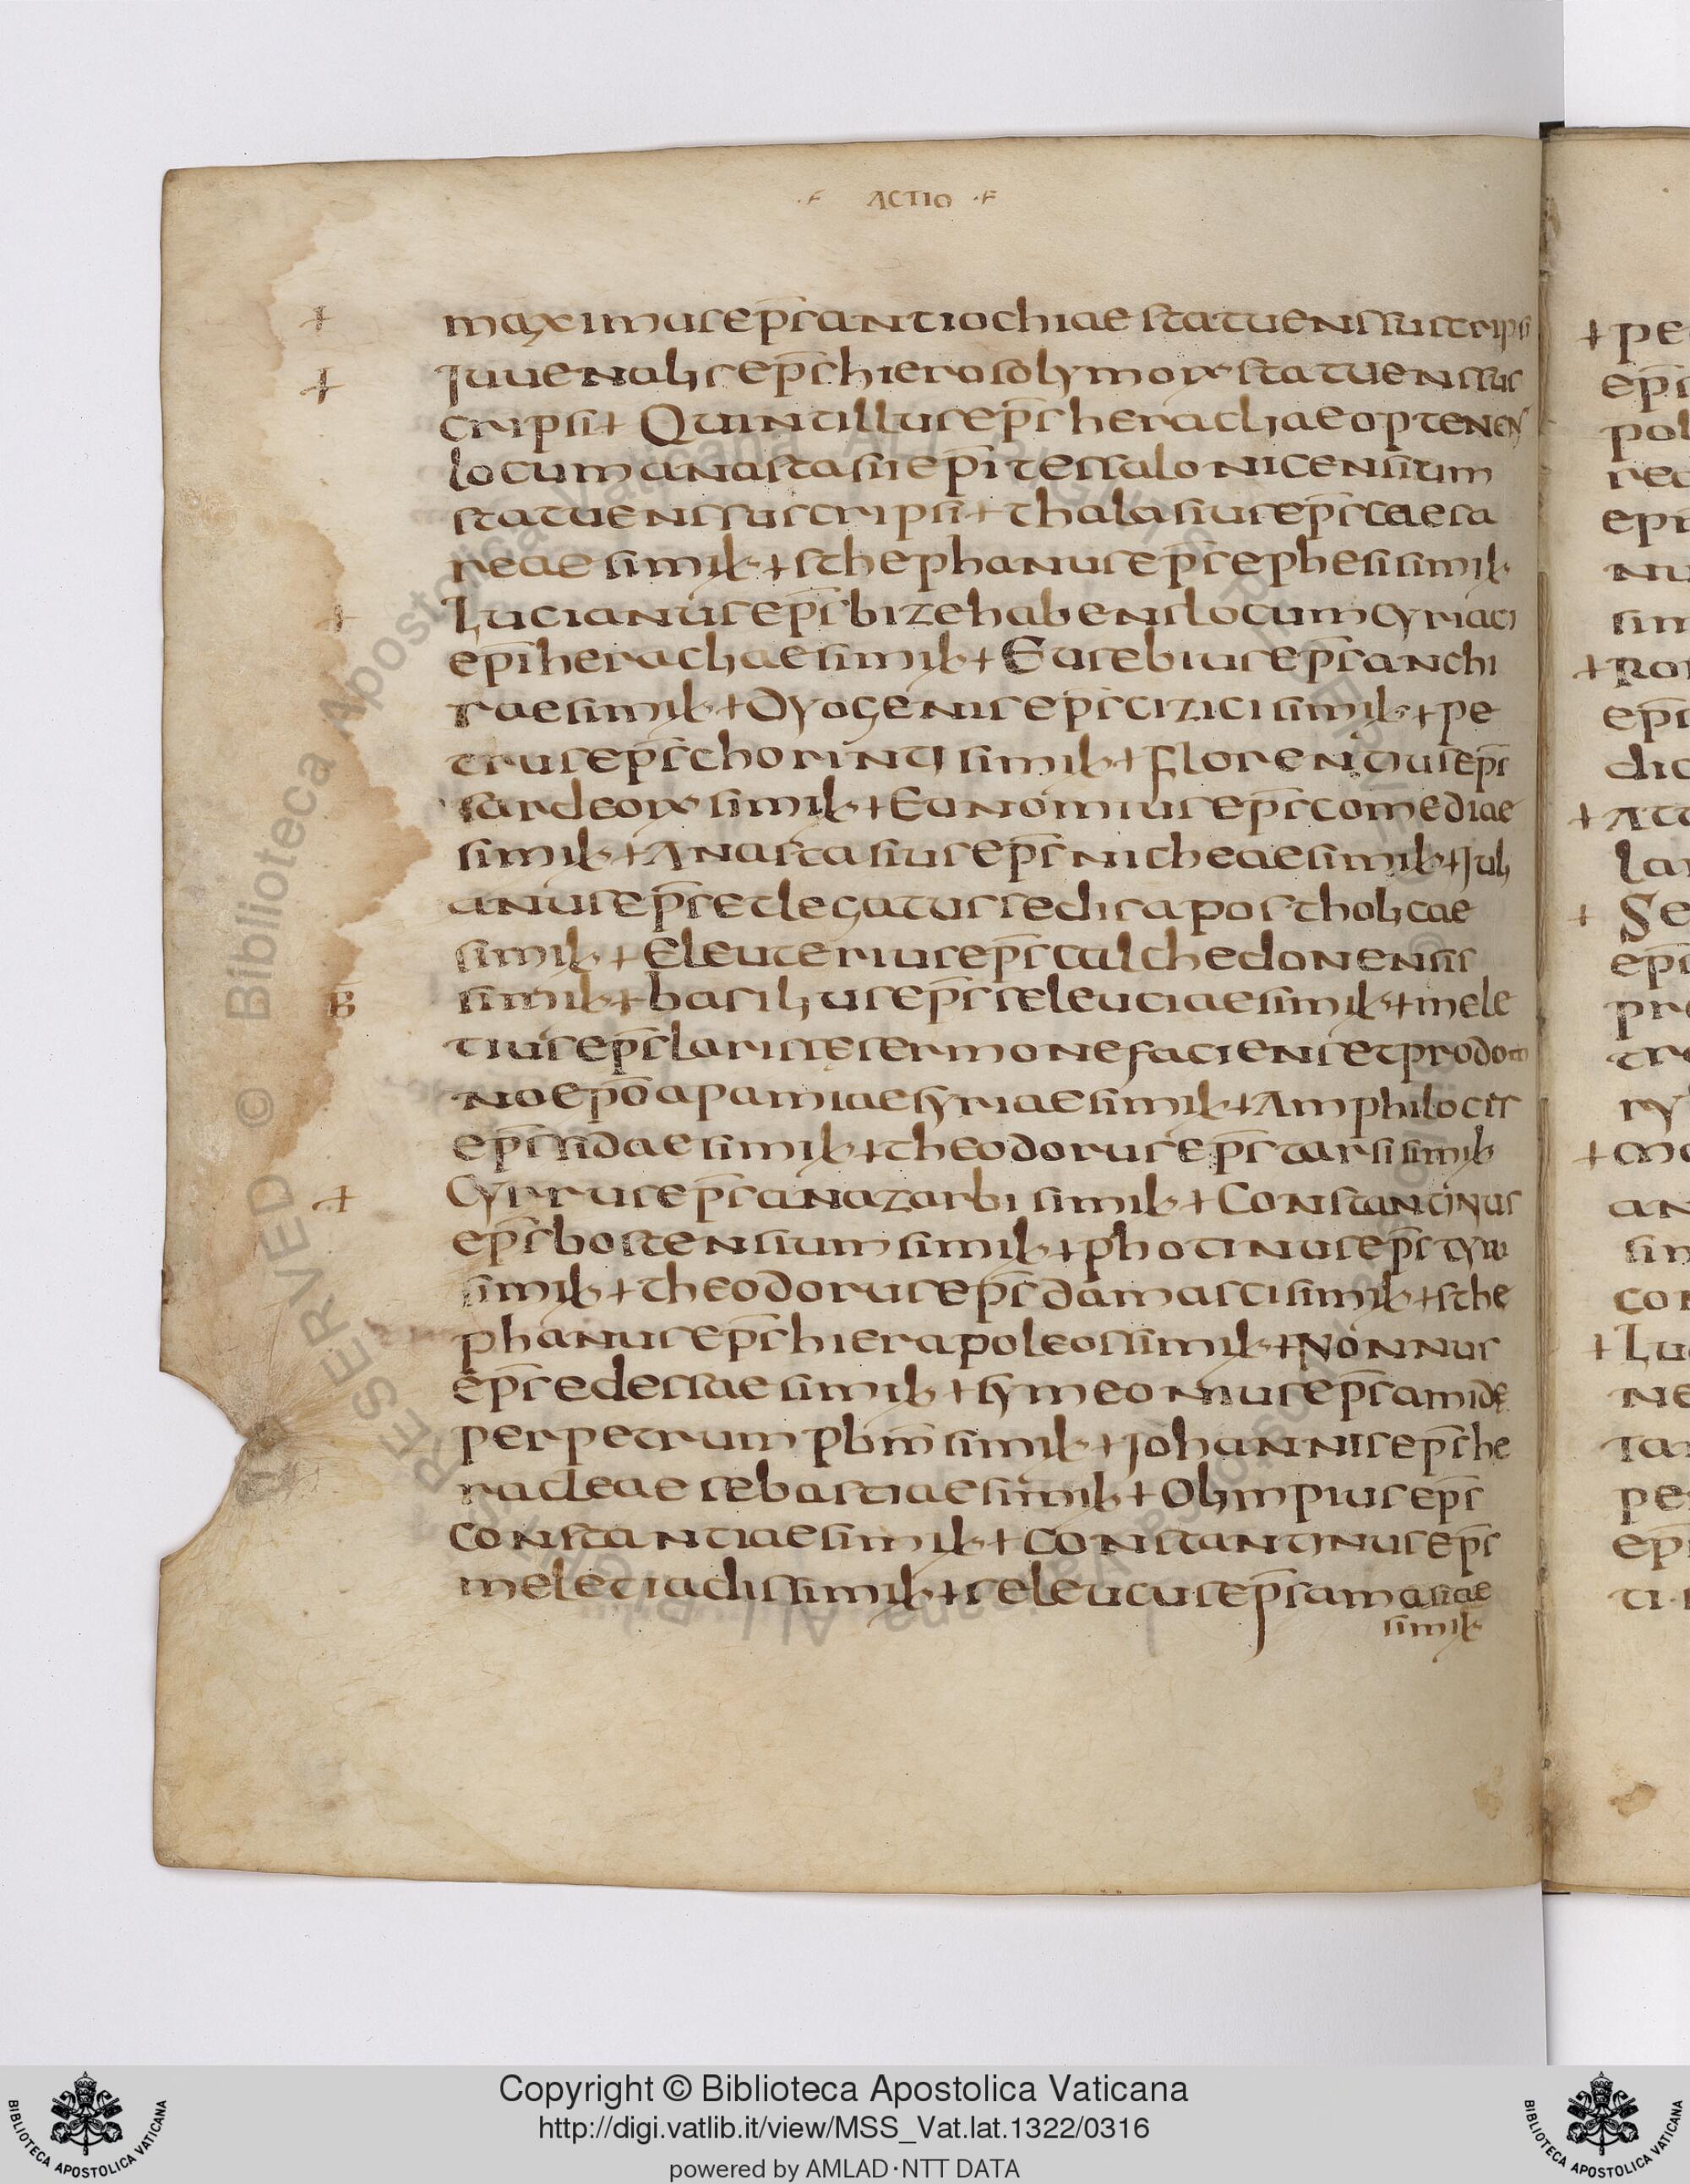 ·F ACTIO ·F
+ maximus ep̅s antiochiae statuens suscripsi
+ Juvenalis ep̅s hierosolymoꝝ statuens sus
cripsit + Quintillus ep̅s heracliae optenens
locum anastasii ep̅i tessalonicensium
statuens suscripsit + thalasius ep̅s caesa
reae simil· + sthephanus ep̅s ephesi simil·
+ Lucianus ep̅s bize habens locum cyriaci
ep̅i heracliae simil· + Eusebius ep̅s anchi
rae simil· + Dyogenis ep̅s cizici simil· + pe
trus ep̅s chorinti simil· + florentius ep̅s
sardeoꝝ simil· + Eunomius ep̅s comediae
simil· + Anastasius ep̅s nicheae simil· + Juli
anus ep̅s et legatus sedis apostholicae
simil· + Eleuterius ep̅s calchedonensis
B simil· + basilius ep̅s seleuciae simil· + mele
tius ep̅s larissę sermone faciens et pro dom
no ep̅o apamiae syriae simil· + Amphilocis
ep̅s sidae simil· + theodorus ep̅s tarsi simil·
+ Cyrrus ep̅s anazarbi simil· + Constantinus
ep̅s bostensium simil· + photinus ep̅s tyri
simil· + theodorus ep̅s damasci simil· + sthe
phanus ep̅s hierapoleos simil· + Nonnus
ep̅s edessae simil· + symeonius ep̅s amidę
per petrum pb̅m simil· + Johannis ep̅s he
racleae sebastiae simil· + Olimpius ep̅s
constantiae simil· + constantinus ep̅s
meletiadis simil· + seleucus ep̅s amasiae
simil·
+ pe
pol
epi
nu
sim
+ Rom
dio
+ Att
lar
+ Se
pro
tro
ry
+ mo
an
sim
con
+ Lu
ne
per
ti·
Copyright © Biblioteca Apostolica Vaticana
http://digi.vatlib.it/view/MSS_Vat.lat.1322/0316
powered by AMLAD·NTT DATA
BIBLIOTECA APOSTOLICA VATICANA
BIBLIOTECA APOSTOLICA VATICANA